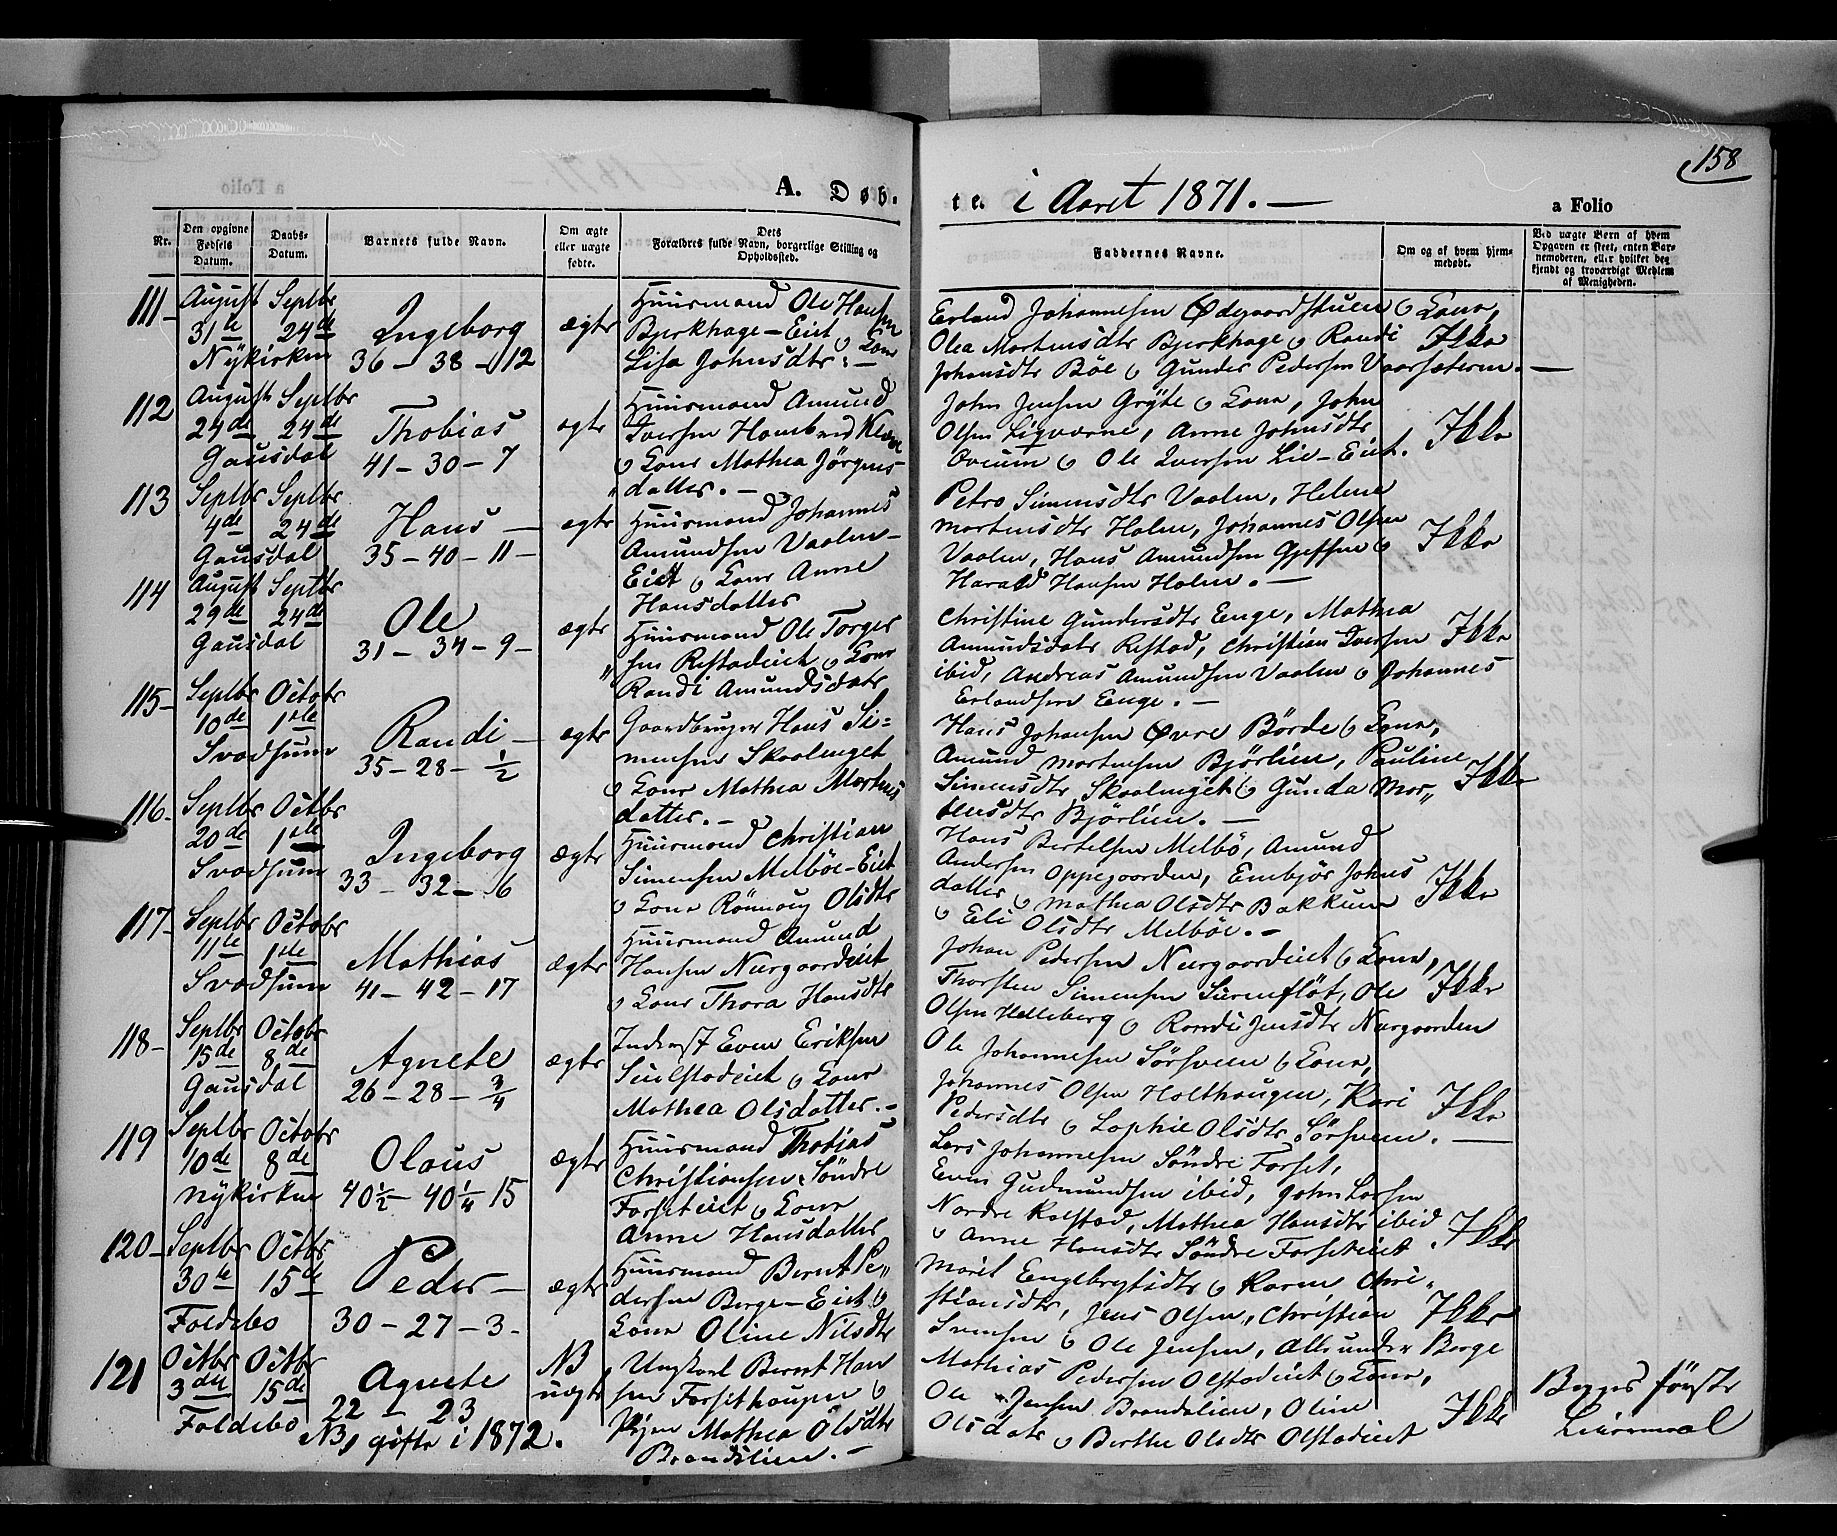 158
a Folio
A. Døb.
te. i Aaret 1871. —
a Folio
Nr.
Den opgivne Fødsels Datum.
Daabs-Datum.
Barnets fulde Navn.
Om ægte eller uægte fødte.
Dets Forældres fulde Navn, borgerlige Stilling og Opholdssted.
Faddernes Navne.
Om og af hvem hjemmedøbt.
Ved uægte Børn af hvem Opgaven er skeet, enten Barnemoderen, eller hvilket bekjendt og troværdigt Medlem af Menigheden.
111-
August 31te
Septbr 24de
Nykirken
Ingeborg
36 - 38 - 12
ægte
Huusmand Ole Hansen
Bjerkhage-Eiet og Kone
Lisa Johnsdtr. -
Erland Johannesen Ødegaardstuen & Kone,
Olea Martensdtr Bjerkhage & Randi
Johansdtr Böe & Gunder Pedersen Vaarsæteren. —
Ikke
112
August 24de
Septbr 24de
Gausdal
Thobias
41 - 30 - 7
ægte
Huusmand Amund
Iversen
& Kone Mathea Jörgens-
datter. -
John Jensen Gryte & Kone, John
Olsen Ligvarne, Anne Johnsdtr
& Ole Iversen Lie-Eiet.
Ikke
113
Septbr 4de
Septbr 24de
Gausdal
Hans -
35 - 40 - 11 -
ægte
Huusmand Johannes
Amundsen Vaalen-
Eiet & Kone Anne
Hansdatter
Petro Simensdtr Vaalen, Helene
Martensdtr Holen, Johannes Olsen
Vaalen, Hans Amundsen &
Harald Hansen Holen. -
Ikke
114
August 29de
Septbr 24de
Gausdal
Ole
31 - 34 - 9 -
ægte
Huusmand Ole Torger
sen Refstadeiet & Kone
Randi Amundsdatr
Christine Gundersdtr Enge, Mathea
Amundsdatr Refstad, Christian Iversen
ibid, Andreas Amundsen Vaalen & Johannes
Erlandsen Enge. -
Ikke
115-
Septbr 10de
Octobr 1ste
Svadsum
Randi -
35 - 28 - 1/2
ægte
Gaardbruger Hans Si=
mensen Skaalenget
& Kone Mathea Mortens
datter. -
Hans Johansen Øvre Börde & Kone,
Amund Mortensen Bjørlien, Pauline
Simensdtr Skaalenget & Gunda Mor„
tensdtr Bjørlien. -
Ikke
116-
Septbr 20de
Octbr 1ste
Svadsum
Ingeborg
33 - 32 - 6
ægte
Huusmand Christian
Simensen Melböe-Eiet
& Kone Rönnaug Olsdtr
Hans Bertelsen Melbö, Amund
Andersen Oppegaarden, Embjör Johns
datter & Mathea Olsdtr Bakkum
& Eli Olsdtr Melböe. -
Ikke
117-
Septbr 11te
Octobr 1ste
Svadsum
Mathias
41 - 42 - 17
ægte
Huusmand Amund
Hansen Nurgaardeiet
& Kone Thora Hansdtr
Johan Pedersen Nurgaardeiet & Kone,
Thorsten Simensen, Ole
Olsen Helleberg & Randi Jensdtr Nurgaarden
Ikke
118-
Septbr 15de
Octobr 8de
Gausdal
Agnete
26 - 28 - 3/4
ægte
Inderst Even Eriksen
& Kone
Mathea Olsdatter. -
Ole Johannesen Sörsveen & Kone,
Johannes Olsen Holthaugen, Kari
Pedersdtr & Sophie Olsdtr Sörsveen. —
Ikke
119
Septbr 10de
Octobr 8de
Nykirken
Olaus
40 1/2 - 40 1/4 15
ægte
Huusmand Thobias
Christiansen Söndre
Forseteiet & Kone
Anne Hansdatter
Lars Johannesen Söndre Forset,
Even Gudmundsen ibid, John Larsen
Nordre Kolstad, Mathea Hansdtr ibid
& Anne Hansdtr Söndre Forseteiet.
Ikke
120-
Septbr 30te
Octbr 15de
Foldebo
Peder -
30 - 27 - 3 -
ægte
Huusmand Bernt Pe„
dersen Berge-Eiet &
Kone Oline Nilsdtr
Marit Engebrytsdtr & Karen Chri-
stiansdtr, Jens Olsen, Christian
Svensen & Ole Jensen, Alle under Berge
Ikke
121
Octbr 3die
Octbr 15de
Foldebo
Agnete
22 - 23
NB, gifte i 1872.
NB
uægte
Ungkarl Bernt Han
sen Forsethaugen &
Pigen Mathea Olsdtr
Brandslien. -
Mathias Pedersen Olstadeiet & Kone,
Ole Jensen Brandslien, Oline
Olsdatr & Berthe Olsdtr Olstadeiet
Ikke
Begges første
Leiermaal